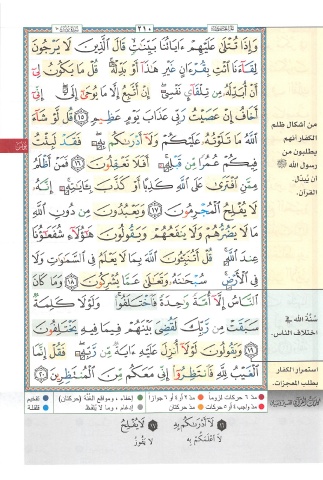 ٢١٠
وَإِذَا تُتْلَىٰ عَلَيْهِمْ ءَايَاتُنَا بَيِّنَٰتٍ قَالَ ٱلَّذِينَ لَا يَرْجُونَ
لِقَآءَنَا ٱئْتِ بِقُرْءَانٍ غَيْرِ هَٰذَآ أَوْ بَدِّلْهُ قُلْ مَا يَكُونُ لِىٓ
أَنْ أُبَدِّلَهُۥ مِن تِلْقَآئِ نَفْسِىٓ إِنْ أَتَّبِعُ إِلَّا مَا يُوحَىٰٓ إِلَىَّ إِنِّىٓ
أَخَافُ إِنْ عَصَيْتُ رَبِّى عَذَابَ يَوْمٍ عَظِيمٍ ١٥ قُل لَّوْ شَآءَ
ٱللَّهُ مَا تَلَوْتُهُۥ عَلَيْكُمْ وَلَآ أَدْرَىٰكُم بِهِۦ فَقَدْ لَبِثْتُ
فِيكُمْ عُمُرًا مِّن قَبْلِهِۦٓ أَفَلَا تَعْقِلُونَ ١٦ فَمَنْ أَظْلَمُ
مِمَّنِ ٱفْتَرَىٰ عَلَى ٱللَّهِ كَذِبًا أَوْ كَذَّبَ بِـَٔايَٰتِهِۦٓ إِنَّهُۥ
لَا يُفْلِحُ ٱلْمُجْرِمُونَ ١٧ وَيَعْبُدُونَ مِن دُونِ ٱللَّهِ
مَا لَا يَضُرُّهُمْ وَلَا يَنفَعُهُمْ وَيَقُولُونَ هَٰٓؤُلَآءِ شُفَعَٰٓؤُنَا
عِندَ ٱللَّهِ قُلْ أَتُنَبِّـُٔونَ ٱللَّهَ بِمَا لَا يَعْلَمُ فِى ٱلسَّمَٰوَٰتِ وَلَا
فِى ٱلْأَرْضِ سُبْحَٰنَهُۥ وَتَعَٰلَىٰ عَمَّا يُشْرِكُونَ ١٨ وَمَا كَانَ
ٱلنَّاسُ إِلَّآ أُمَّةً وَٰحِدَةً فَٱخْتَلَفُوا۟ وَلَوْلَا كَلِمَةٌ
سَبَقَتْ مِن رَّبِّكَ لَقُضِىَ بَيْنَهُمْ فِيمَا فِيهِ يَخْتَلِفُونَ
١٩ وَيَقُولُونَ لَوْلَآ أُنزِلَ عَلَيْهِ ءَايَةٌ مِّن رَّبِّهِۦ فَقُلْ إِنَّمَا
ٱلْغَيْبُ لِلَّهِ فَٱنتَظِرُوٓا۟ إِنِّى مَعَكُم مِّنَ ٱلْمُنتَظِرِينَ ٢٠
من أشكال ظلم
الكفار أنهم
يطلبون من
رسول الله ﷺ
أن يُبدل
القرآن.
سُنَّة الله في
اختلاف الناس.
استمرار الكفار
بطلب المعجزات.
مد ٦ حركات لزوماً
مد ٢ أو ٤ أو ٦ جوازاً
إخفاء، ومواقع الغُنَّة (حركتان)
تفخيم
مد واجب ٤ أو ٥ حركات
مد حركتان
إدغام، وما لا يُلفَظ
قلقلة
١٦ لَا أَدْرَىٰكُم بِهِ
لا أعْلَمَكُمْ بِهِ
١٧ لَا يُفْلِحُ
لا يَفُوزُ